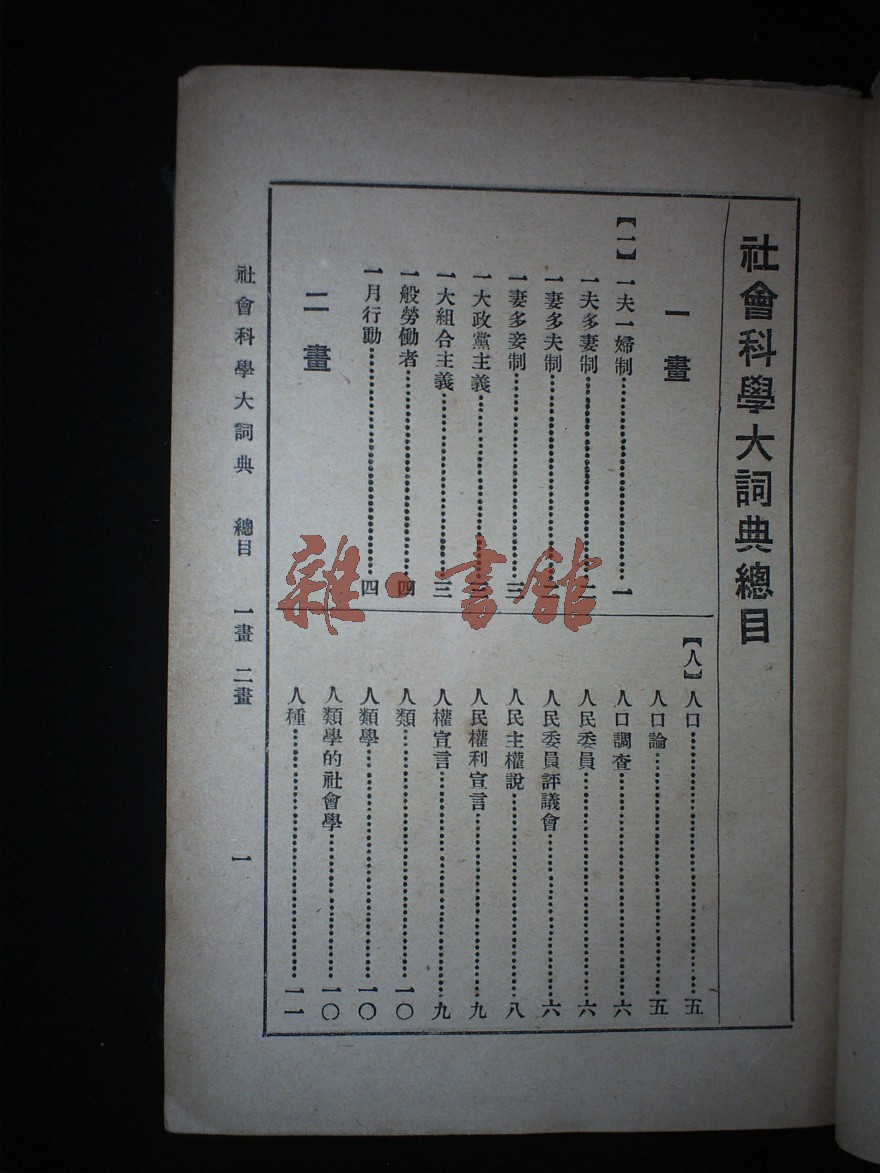 社會科學大詞典總目
一畫
【一】一夫一婦制……一
一夫多妻制……二
一妻多夫制……二
一妻多妾制……三
一大政黨主義……三
一大組合主義……三
一般勞働者……四
一月行動……四
二畫
【人】人口……五
人口論……五
人口調查……六
人民委員……六
人民委員評議會……六
人民主權說……八
人民權利宣言……九
人權宣言……九
人類……一〇
人類學……一〇
人類學的社會學……一〇
人種……一一
社會科學大詞典 總目 一畫 二畫 一
雜·書館